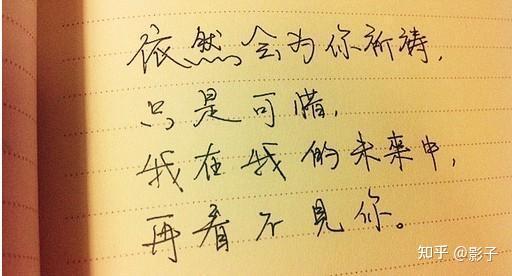 依然会为你祈祷,
只是可惜,
我在我的未來中,
再看不見你。
知乎 @影子